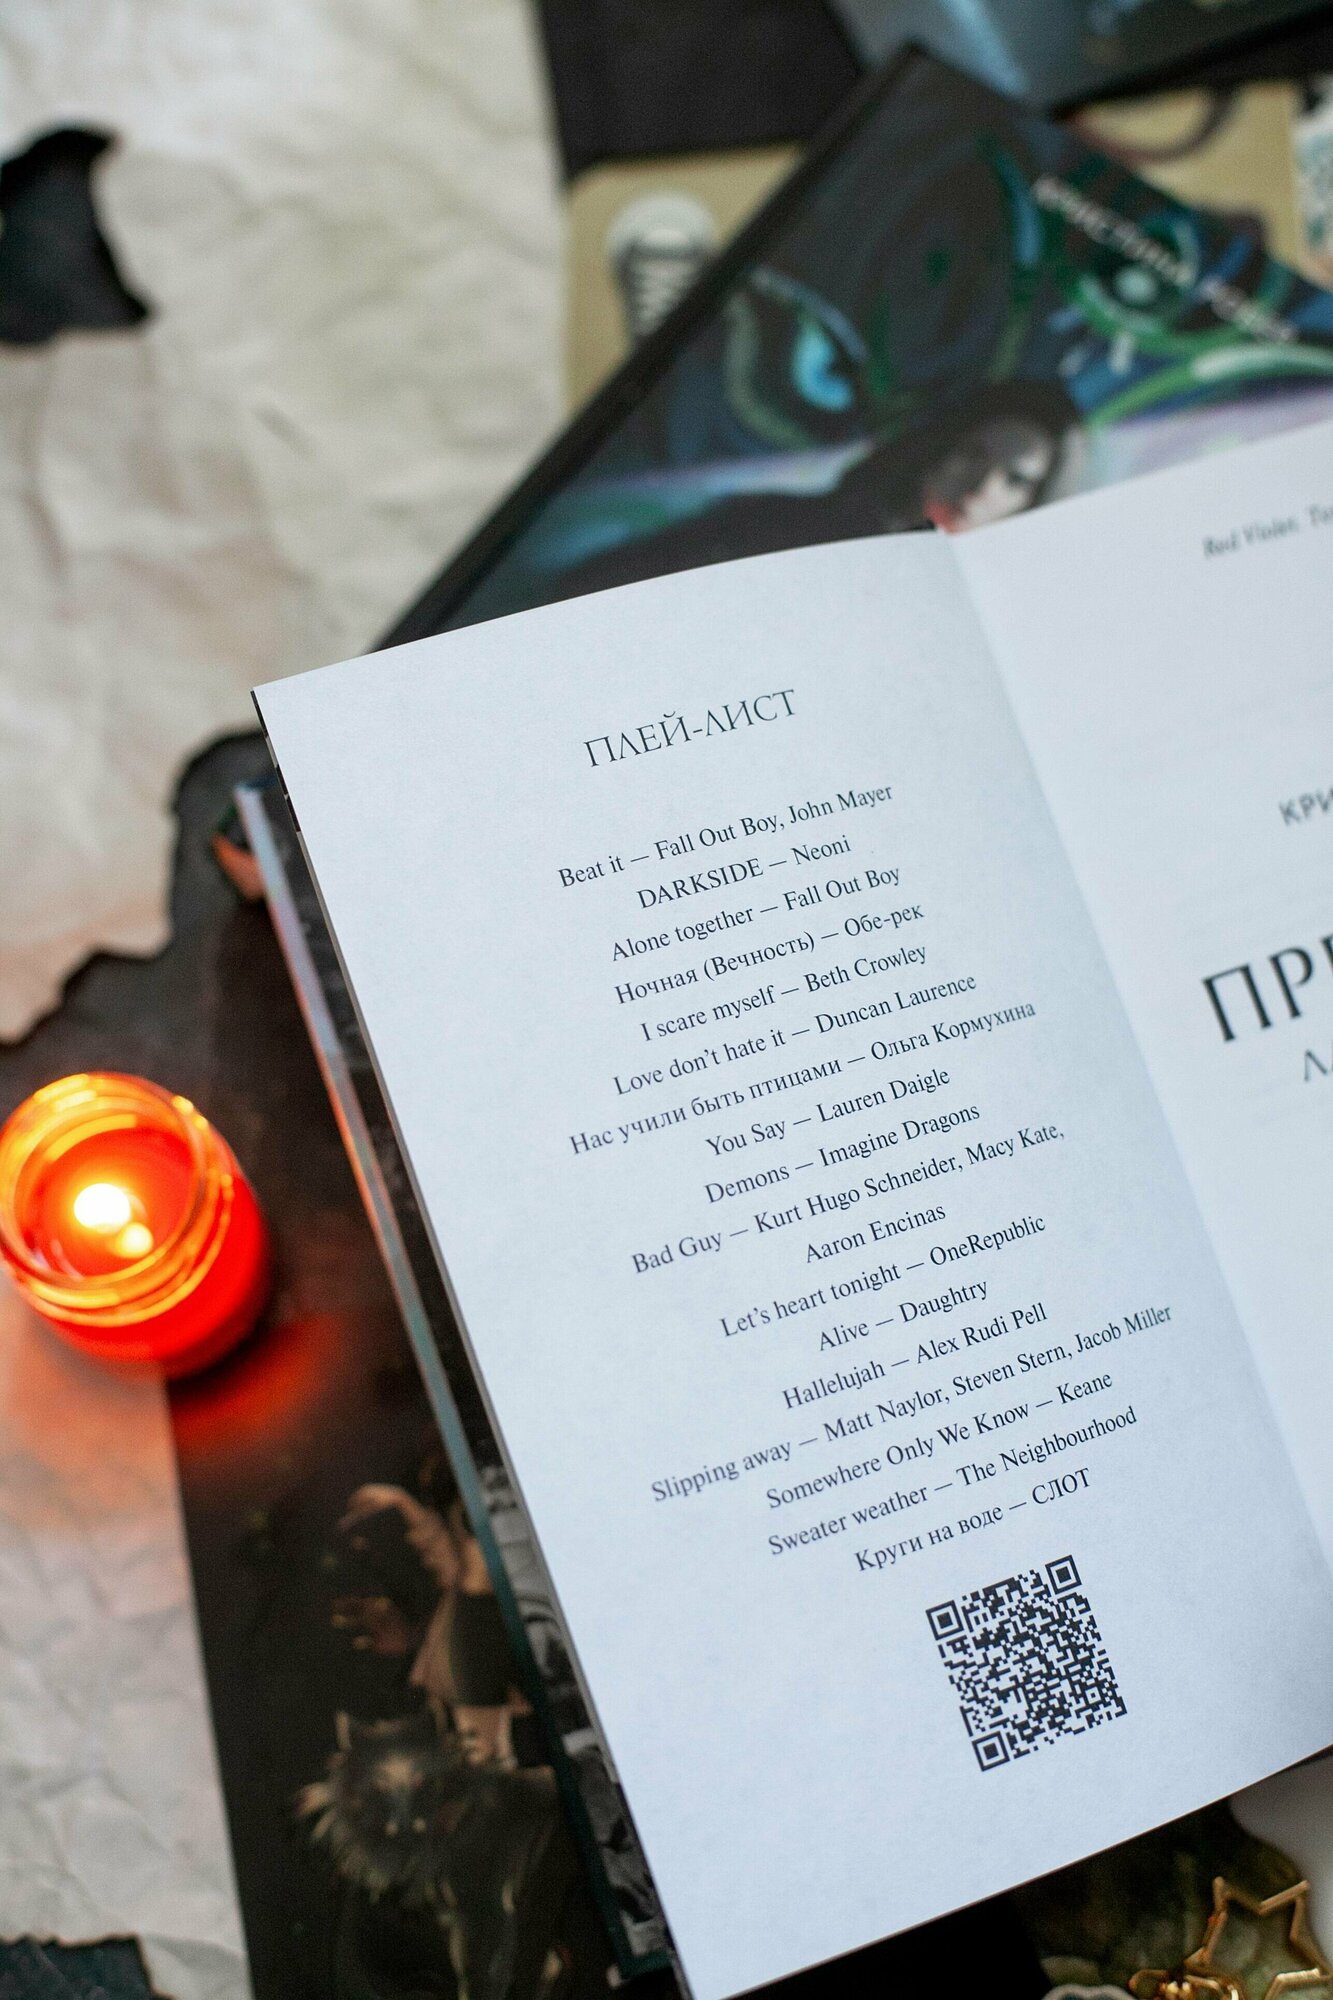 ПЛЕЙ-ЛИСТ
Beat it — Fall Out Boy, John Mayer
DARKSIDE — Neoni
Alone together — Fall Out Boy
Ночная (Вечность) — Обе-рек
I scare myself — Beth Crowley
Love don't hate it — Duncan Laurence
Нас учили быть птицами — Ольга Кормухина
You Say — Lauren Daigle
Demons — Imagine Dragons
Bad Guy — Kurt Hugo Schneider, Macy Kate,
Aaron Encinas
Let's heart tonight — OneRepublic
Alive — Daughtry
Hallelujah — Alex Rudi Pell
Slipping away — Matt Naylor, Steven Stern, Jacob Miller
Somewhere Only We Know — Keane
Sweater weather — The Neighbourhood
Круги на воде — СЛОТ
Red Violet.
КРИ
ПР